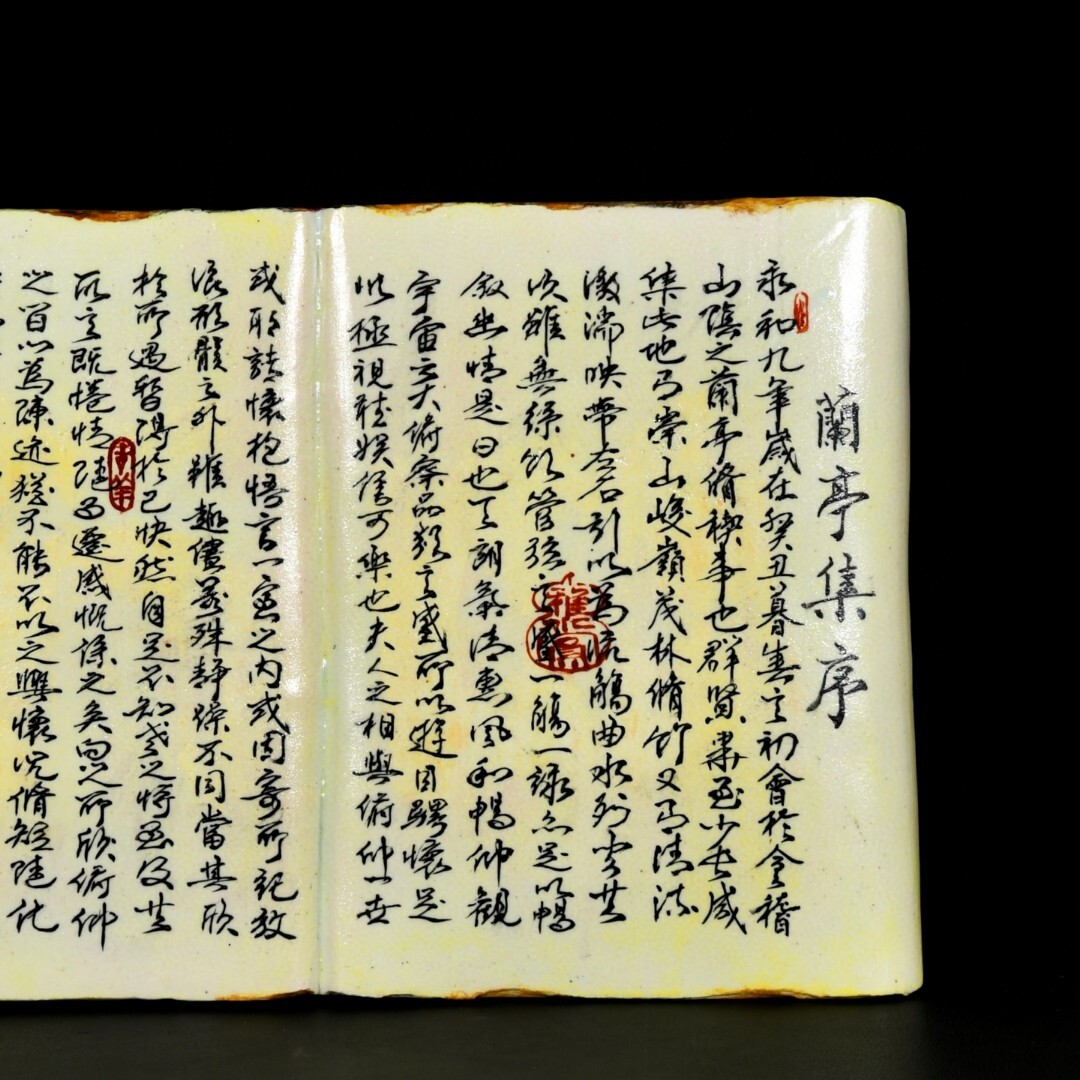 蘭亭集序
永和九年歲在癸丑暮春之初會於會稽
山陰之蘭亭脩稧事也群賢畢至少長咸
集此地有崇山峻嶺茂林脩竹又有清流
激湍映帶左右引以為流觴曲水列坐其
次雖無絲竹管弦之盛一觴一詠亦足以暢
敘幽情是日也天朗氣清惠風和暢仰觀
宇宙之大俯察品類之盛所以遊目騁懷足
以極視聽娛信可樂也夫人之相與俯仰一世
或取諸懷抱悟言一室之內或因寄所託放
浪形骸之外雖趣舍萬殊靜躁不同當其欣
於所遇暫得於己快然自足不知老之將至及其
所之既惓情隨事遷感慨係之矣向之所欣俯仰
之間以為陳迹猶不能不以之興懷況脩短隨化